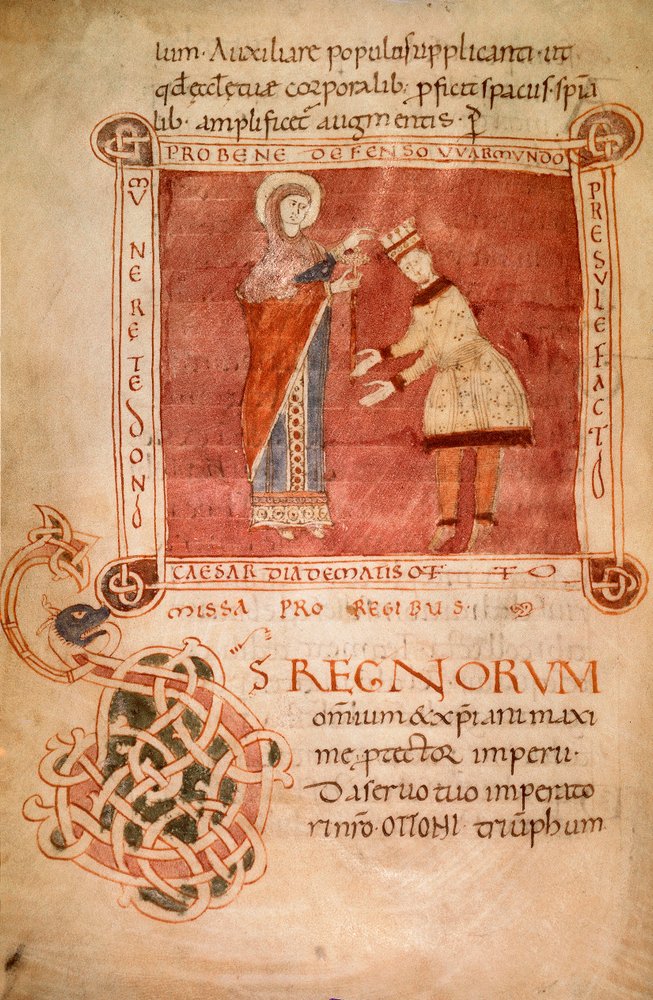 lum· Auxiliare populo supplicanti· ut
qđ ęcclęsiæ corporalib; pficit spacus· spia
lib· amplificet augmentis· P
PRO BENE DEFENSO VVARMUNDO
PRESULE FACTO
MUNERE TE DONO
CAESAR DIADEMATIS OTTO
MISSA PRO REGIBUS·
DS REGNORVM
omium & xpiani maxi
me ptector imperii·
Da seruo tuo imperato
ri nro· OTTONI· triuphum